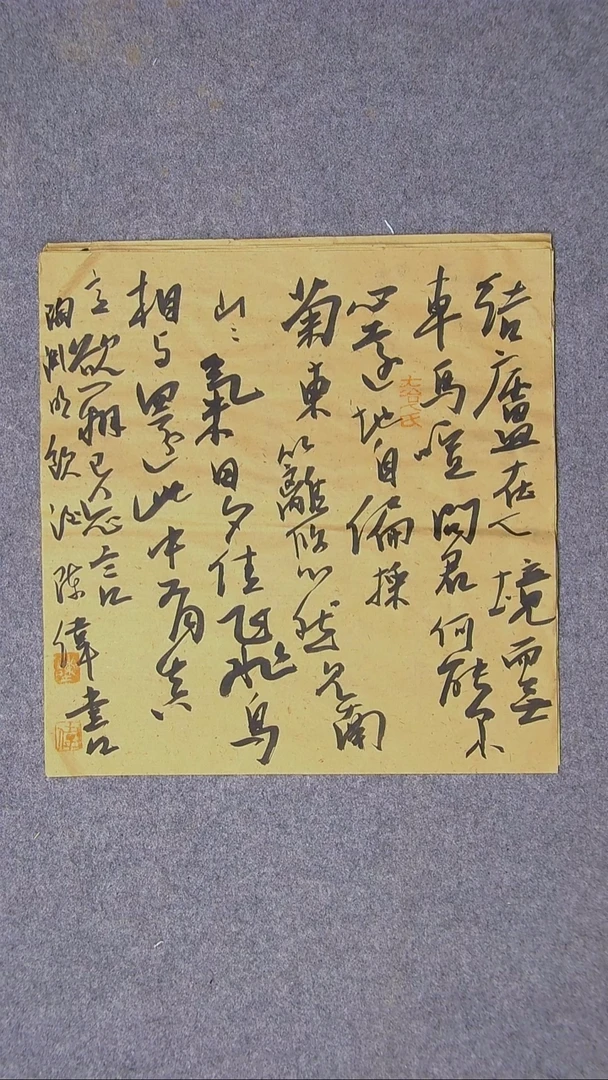 結廬在人境而無
車馬喧問君何能尔
心遠地自偏採
菊東籬悠然見南
山〻氣日夕佳飛鳥
相与還此中有真
意欲辨已忘言
陶渊明飲酒陈偉書